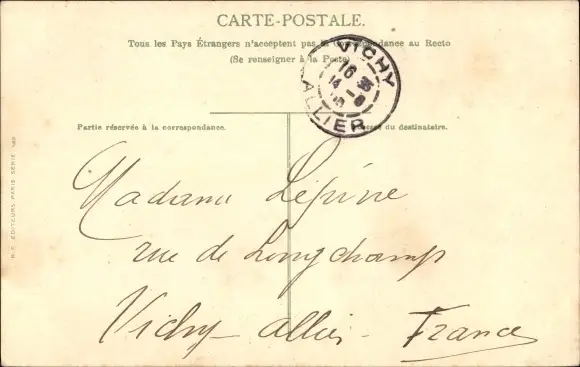 CARTE-POSTALE.
Tous les Pays Étrangers n'acceptent pas la Correspondance au Recto
(Se renseigner à la Poste)
VICHY
16 35
14 -8
ALLIER
Partie réservée à la correspondance.
du destinataire.
Madame Lépine
rue de Longchamp
Vichy - Allier - France
EDITEURS PARIS SERIE